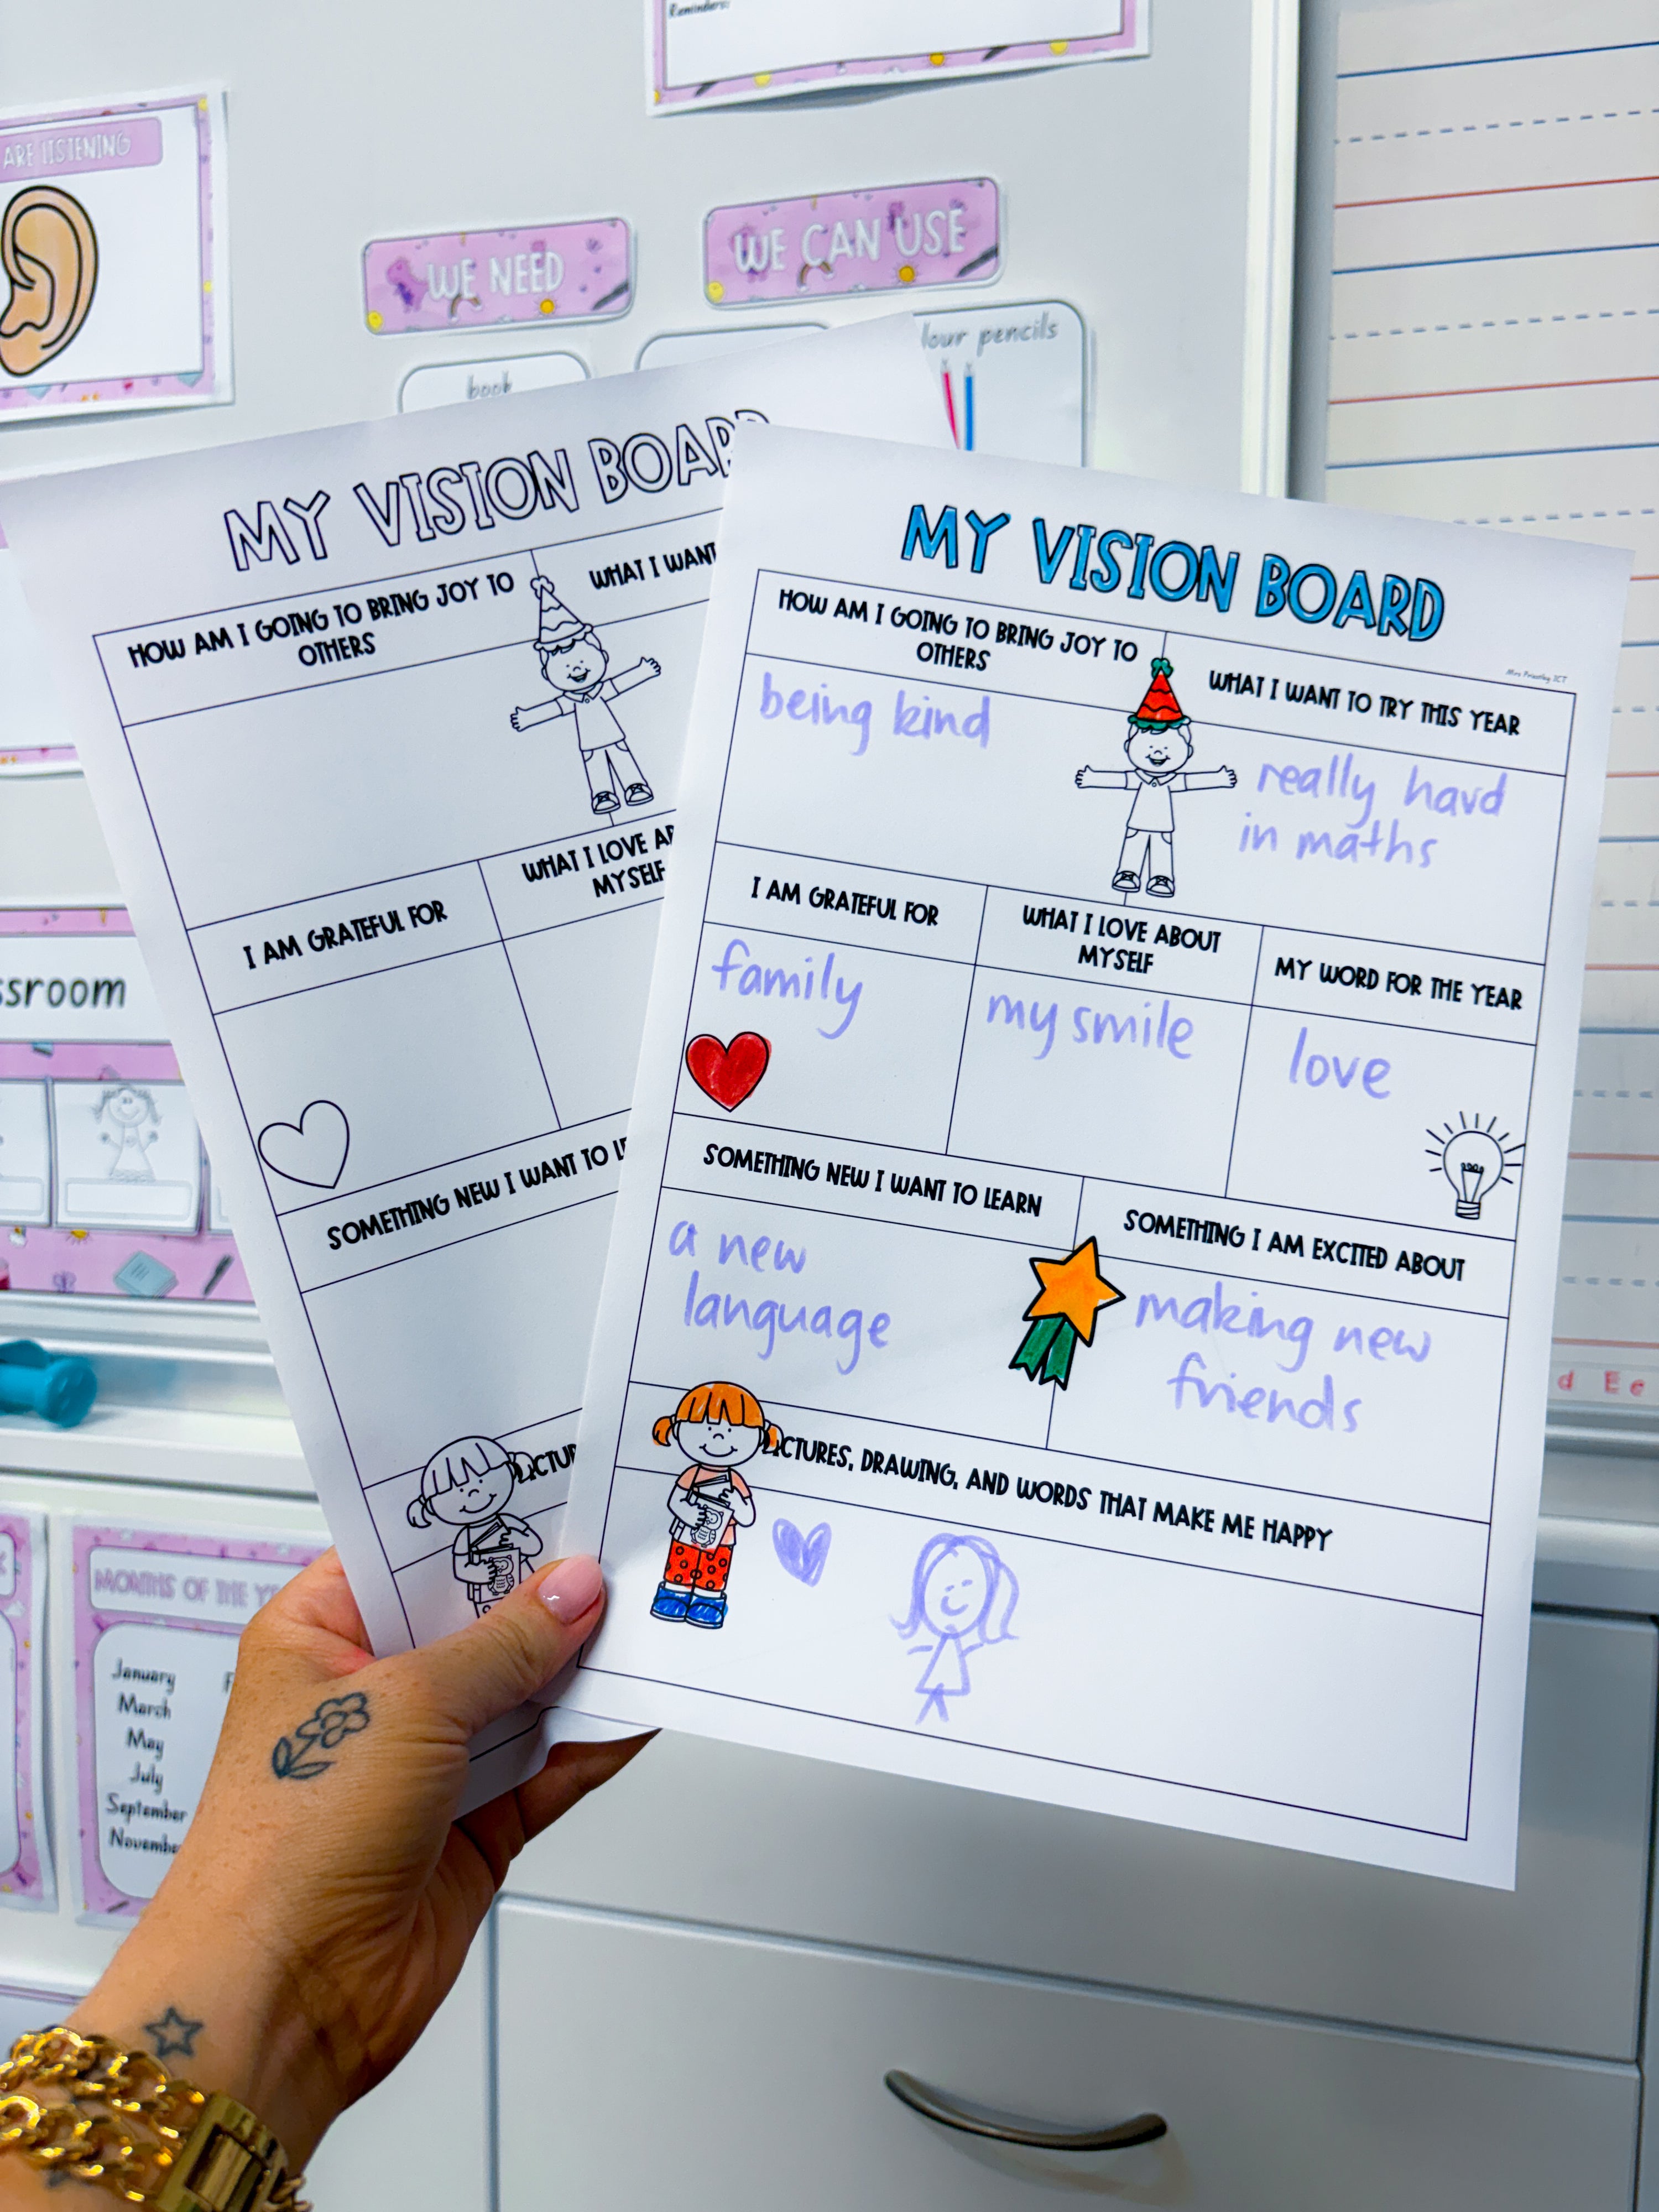 Reminders:
ARE LISTENING
WE NEED
WE CAN USE
book
lour pencils
MY VISION BOARD
HOW AM I GOING TO BRING JOY TO
OTHERS
WHAT I WANT
I AM GRATEFUL FOR
WHAT I LOVE AB
MYSELF
SOMETHING NEW I WANT TO LE
ICTUR
MY VISION BOARD
Mrs Priestley ICT
HOW AM I GOING TO BRING JOY TO
OTHERS
being kind
WHAT I WANT TO TRY THIS YEAR
really hard
in maths
I AM GRATEFUL FOR
family
WHAT I LOVE ABOUT
MYSELF
my smile
MY WORD FOR THE YEAR
love
SOMETHING NEW I WANT TO LEARN
a new
language
SOMETHING I AM EXCITED ABOUT
making new
friends
PICTURES, DRAWING, AND WORDS THAT MAKE ME HAPPY
ssroom
d Ee
MONTHS OF THE YE
January
F
March
May
July
September
Novembe